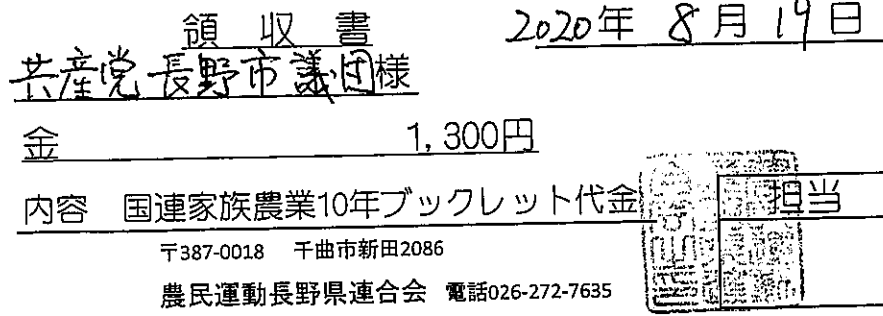 領収書
2020年 8月19日
共産党長野市議団様
金 1,300円
内容 国連家族農業10年ブックレット代金
担当
〒387-0018 千曲市新田2086
農民運動長野県連合会 電話026-272-7635